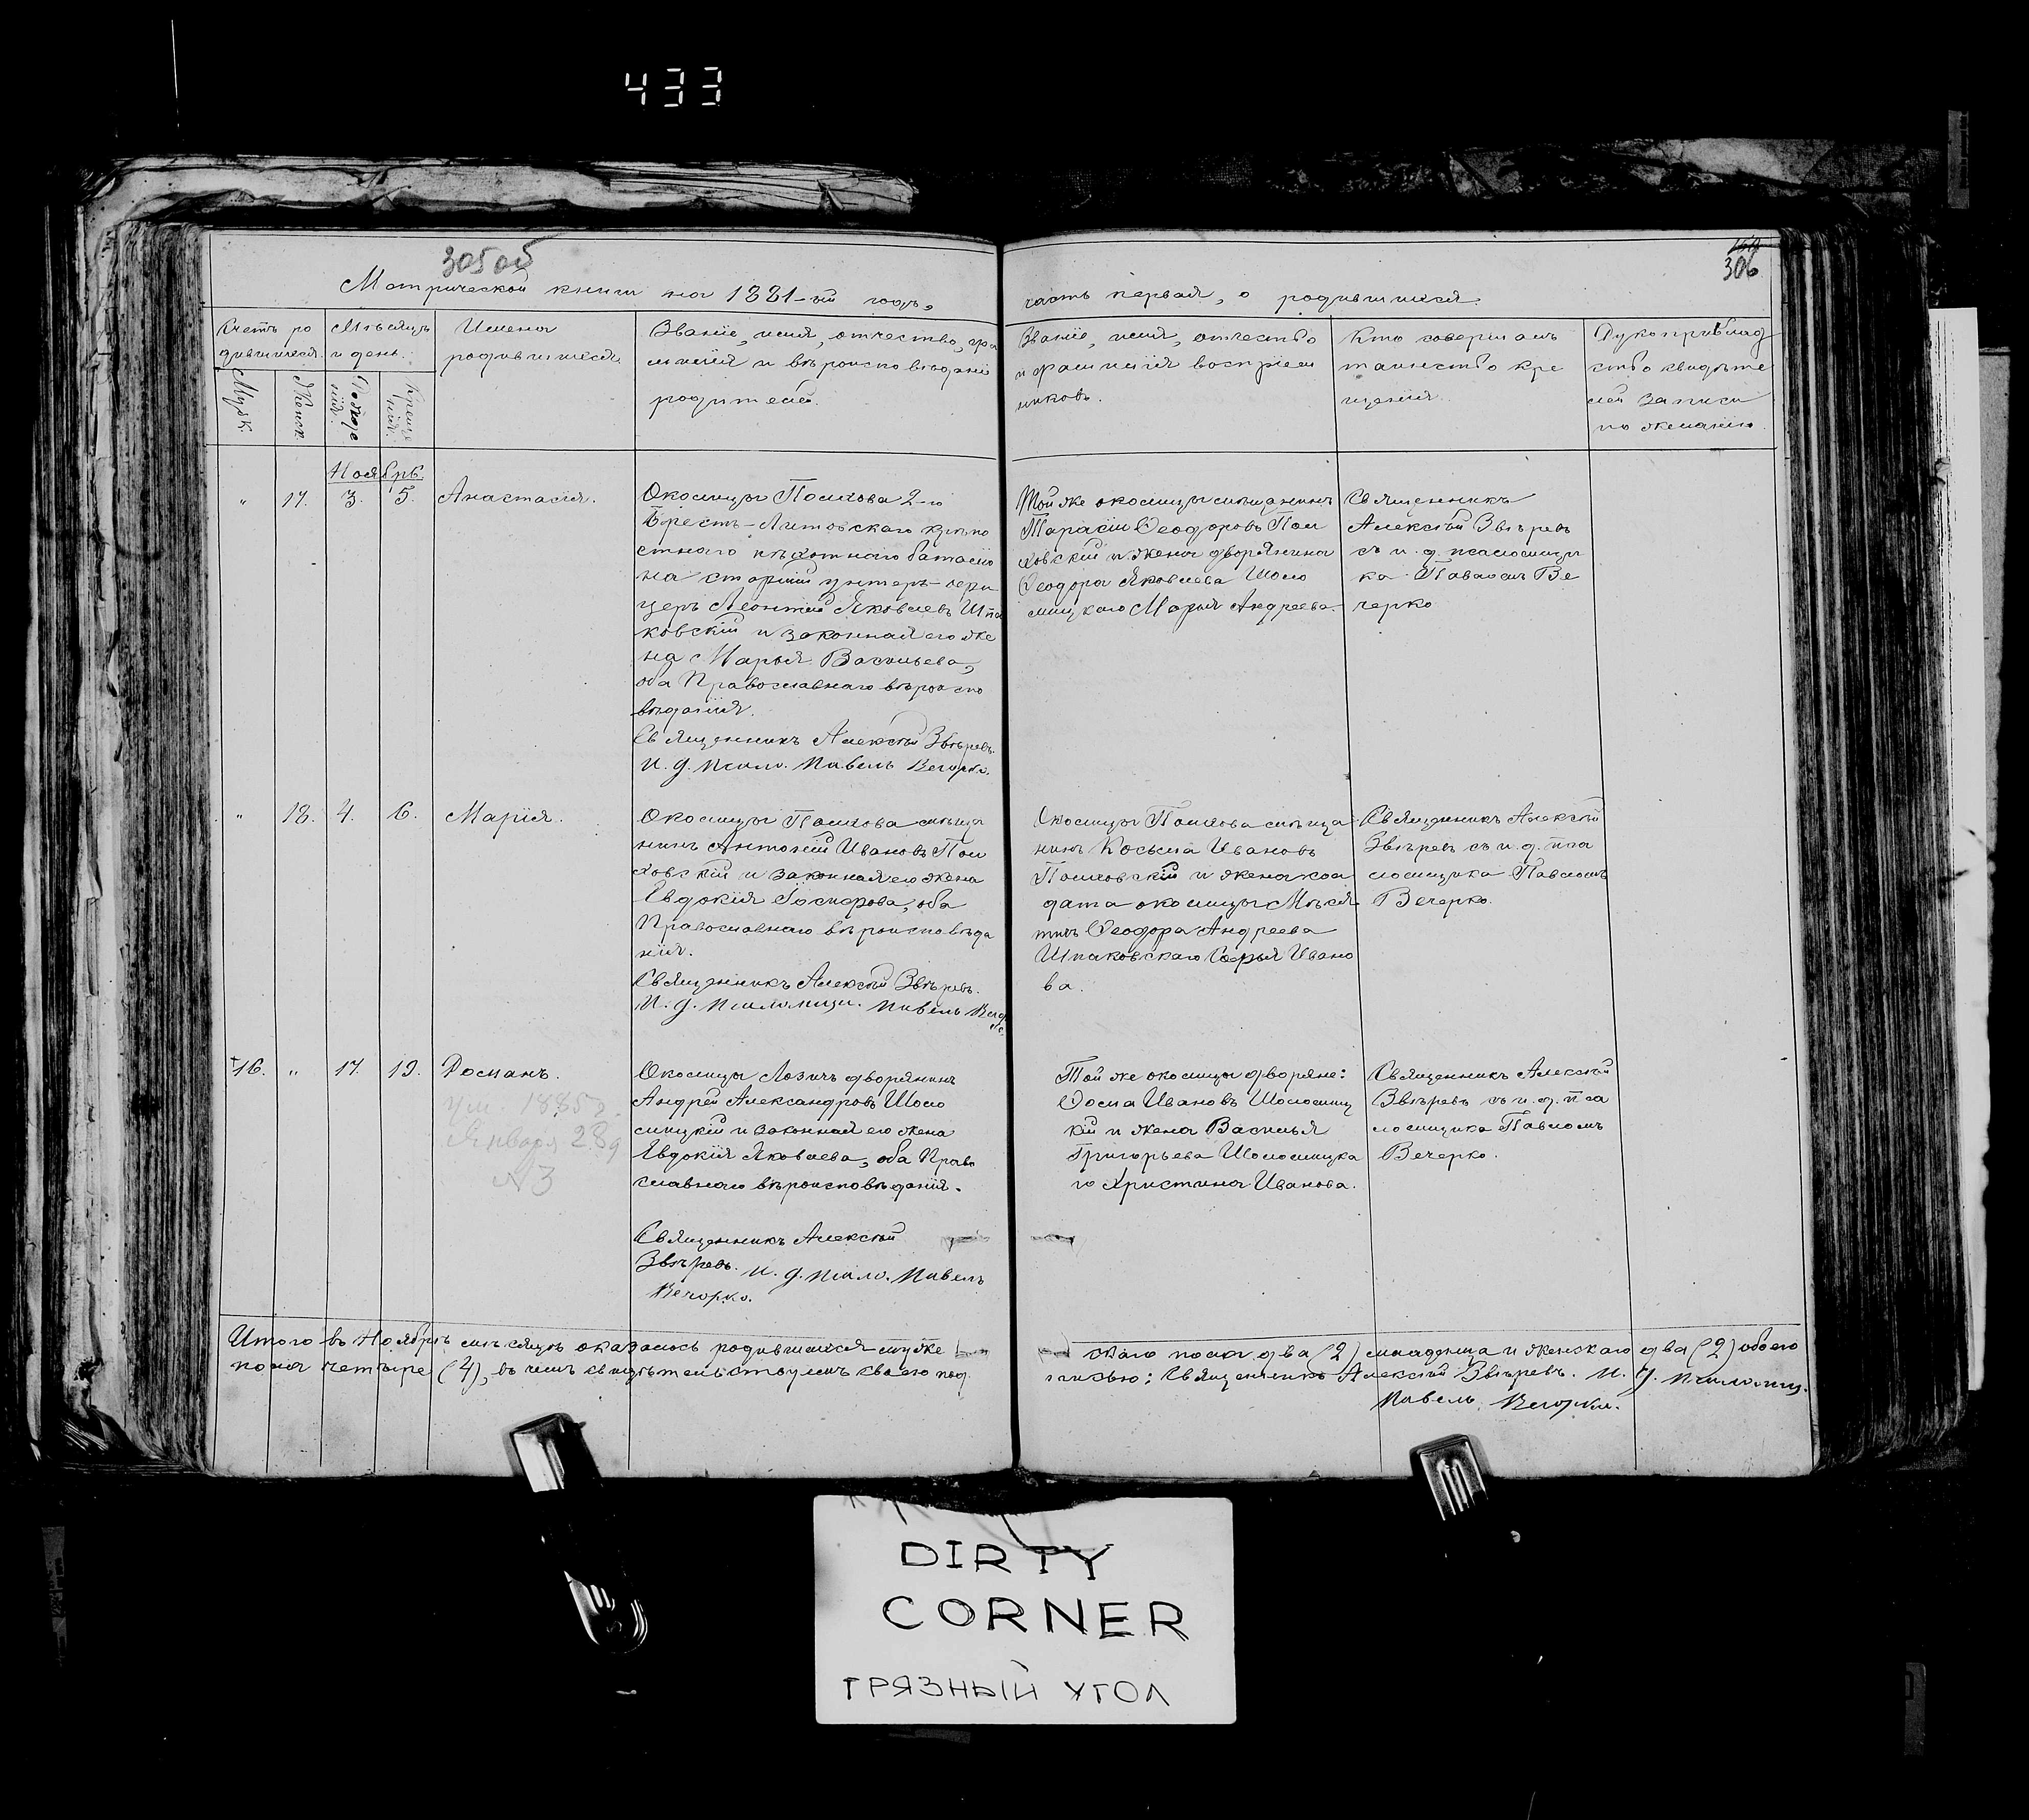 433
305об
306
Метрической книги на 1881-й годъ,
часть первая, о родившихся.
Счетъ ро
дившихся.
Муж.
Женск.
Мѣсяцъ
и день.
Рожде
нія.
Креще
нія.
Имена
родившихся
Званіе, имя, отчество, фа
милія и вѣроисповѣданіе
родителей.
Званіе, имя, отчество
и фамилія воспріем
никовъ.
Кто совершалъ
таинство кре
щенія.
Рукоприклад
ство свидѣте
лей записи
по желанію.
Ноябрь.
" 17. 3. 5. Анастасія.
Околицы Полхова 2-го
Брестъ-Литовскаго крѣпо
стнаго пѣхотнаго баталіо
на старшій унтеръ-офи
церъ Леонтій Яковлевъ Шпа
ковскій и законная его же
на Марья Васильева,
оба Православнаго вѣроиспо
вѣданія.
Священникъ Алексѣй Звѣревъ.
И. д. псало. Павелъ Вечорко.
Той же околицы мѣщанинъ
Тарасій Ѳеодоровъ Пол
ховскій и жена дворянина
Ѳеодора Яковлева Шоло
мицкаго Марья Андреева.
Священникъ
Алексѣй Звѣревъ
съ и. д. псаломщи
ка Павломъ Ве
черко
" 18. 4. 6. Марія.
Околицы Полхова мѣща
нинъ Антоній Ивановъ Пол
ховскій и законная его жена
Евдокія Госпорова, оба
Православнаго вѣроисповѣда
нія.
Священникъ Алексѣй Звѣревъ.
И. д. псаломщи. Павелъ Вечор
ко.
Околицы Полхова мѣща
нинъ Косьма Ивановъ
Полховскій и жена сол
дата околицы Мѣся
тичъ Ѳеодора Андреева
Шпаковскаго Софья Ивано
ва.
Священникъ Алексѣй
Звѣревъ съ и. д. пса
ломщика Павломъ
Вечерко.
+16. " 17. 19. Романъ.
ум. 1885 г.
Января 28 д
№ 3
Околицы Лозичъ дворянинъ
Андрей Александровъ Шоло
мицкій и законная его жена
Евдокія Яковлева, оба Право
славнаго вѣроисповѣданія.
Священникъ Алексѣй
Звѣревъ. И. д. псало. Павелъ
Вечорко.
Той же околицы дворяне:
Ѳома Ивановъ Шоломиц
кій и жена Василья
Григорьева Шоломицка
го Христина Иванова.
Священникъ Алексѣй
Звѣревъ съ и. д. пса
ломщика Павломъ
Вечерко.
Итого въ Ноябрѣ мѣсяцѣ оказалось родившихся муже
скаго пола два (2) младенца и женскаго два (2) обоего
пола четыре (4), въ чемъ свидѣтельствуемъ своею под
писью: Священникъ Алексѣй Звѣревъ. И. д. псаломщ.
Павелъ Вечорко.
DIRTY
CORNER
ГРЯЗНЫЙ УГОЛ